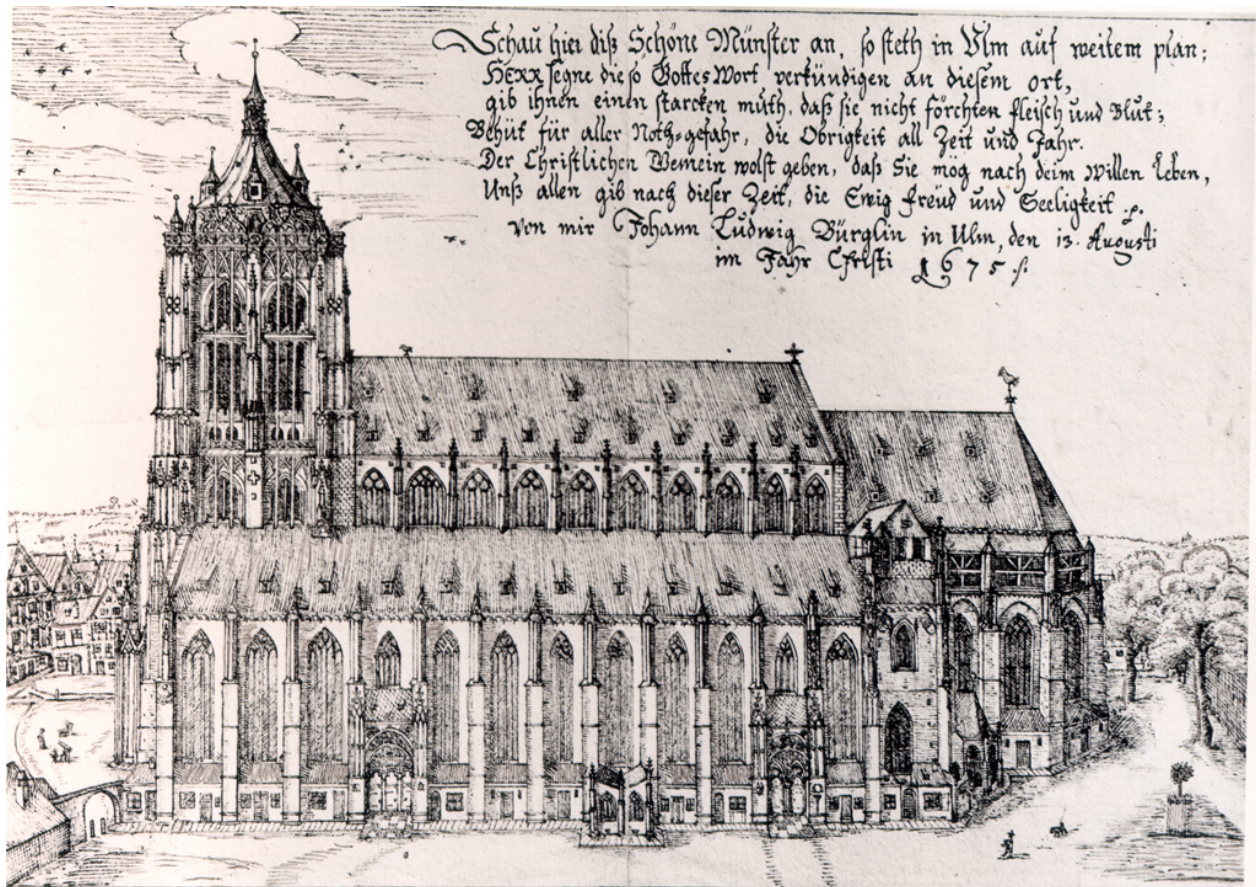 Schau hier diß Schöne Münster an, so steth in Ulm auf weitem plan;
HERR segne die so Gottes Wort verkündigen an diesem ort,
gib ihnen einen starcken muth, daß sie nicht förchten fleisch und Blut;
Behüt für aller Noth=gefahr, die Obrigkeit all Zeit und Jahr.
Der Christlichen Gemein wolst geben, daß Sie mög nach deim Willen leben,
Unß allen gib nach dieser Zeit, die Ewig freüd und Seeligkeit
von mir Johann Ludwig Bürglin in Ulm, den 13. Augusti
im Jahr Christi 1675